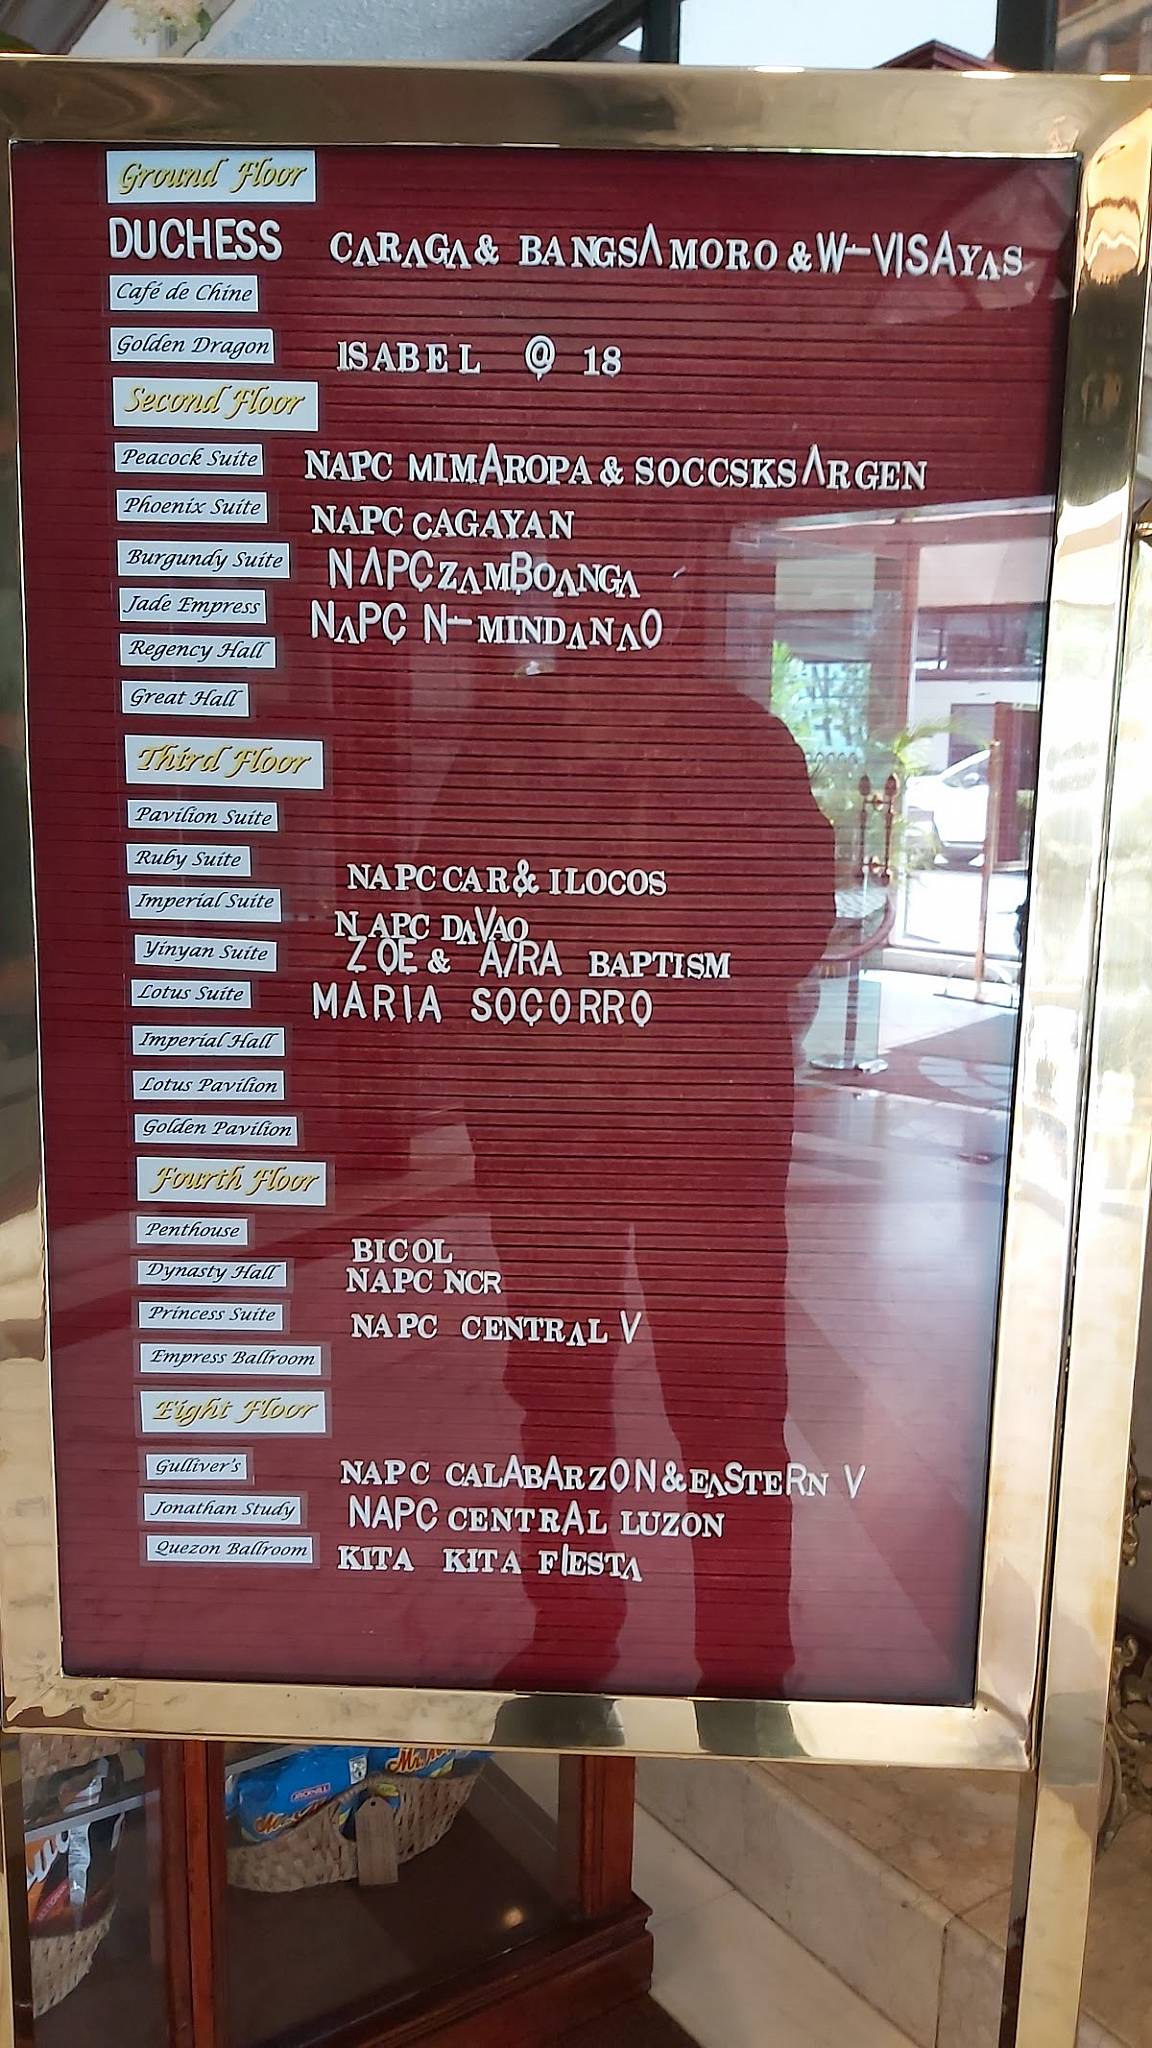 Ground Floor
DUCHESS CARAGA & BANGSAMORO & W-VISAYAS
Café de Chine
Golden Dragon ISABEL @ 18
Second Floor
Peacock Suite NAPC MIMAROPA & SOCCSKSARGEN
Phoenix Suite NAPC CAGAYAN
Burgundy Suite NAPC ZAMBOANGA
Jade Empress NAPC N-MINDANAO
Regency Hall
Great Hall
Third Floor
Pavilion Suite
Ruby Suite NAPC CAR & ILOCOS
Imperial Suite NAPC DAVAO
Yinyan Suite ZOE & A/RA BAPTISM
Lotus Suite MARIA SOCORRO
Imperial Hall
Lotus Pavilion
Golden Pavilion
Fourth Floor
Penthouse BICOL
Dynasty Hall NAPC NCR
Princess Suite NAPC CENTRAL V
Empress Ballroom
Eight Floor
Gulliver's NAPC CALABARZON & EASTERN V
Jonathan Study NAPC CENTRAL LUZON
Quezon Ballroom KITA KITA FIESTA